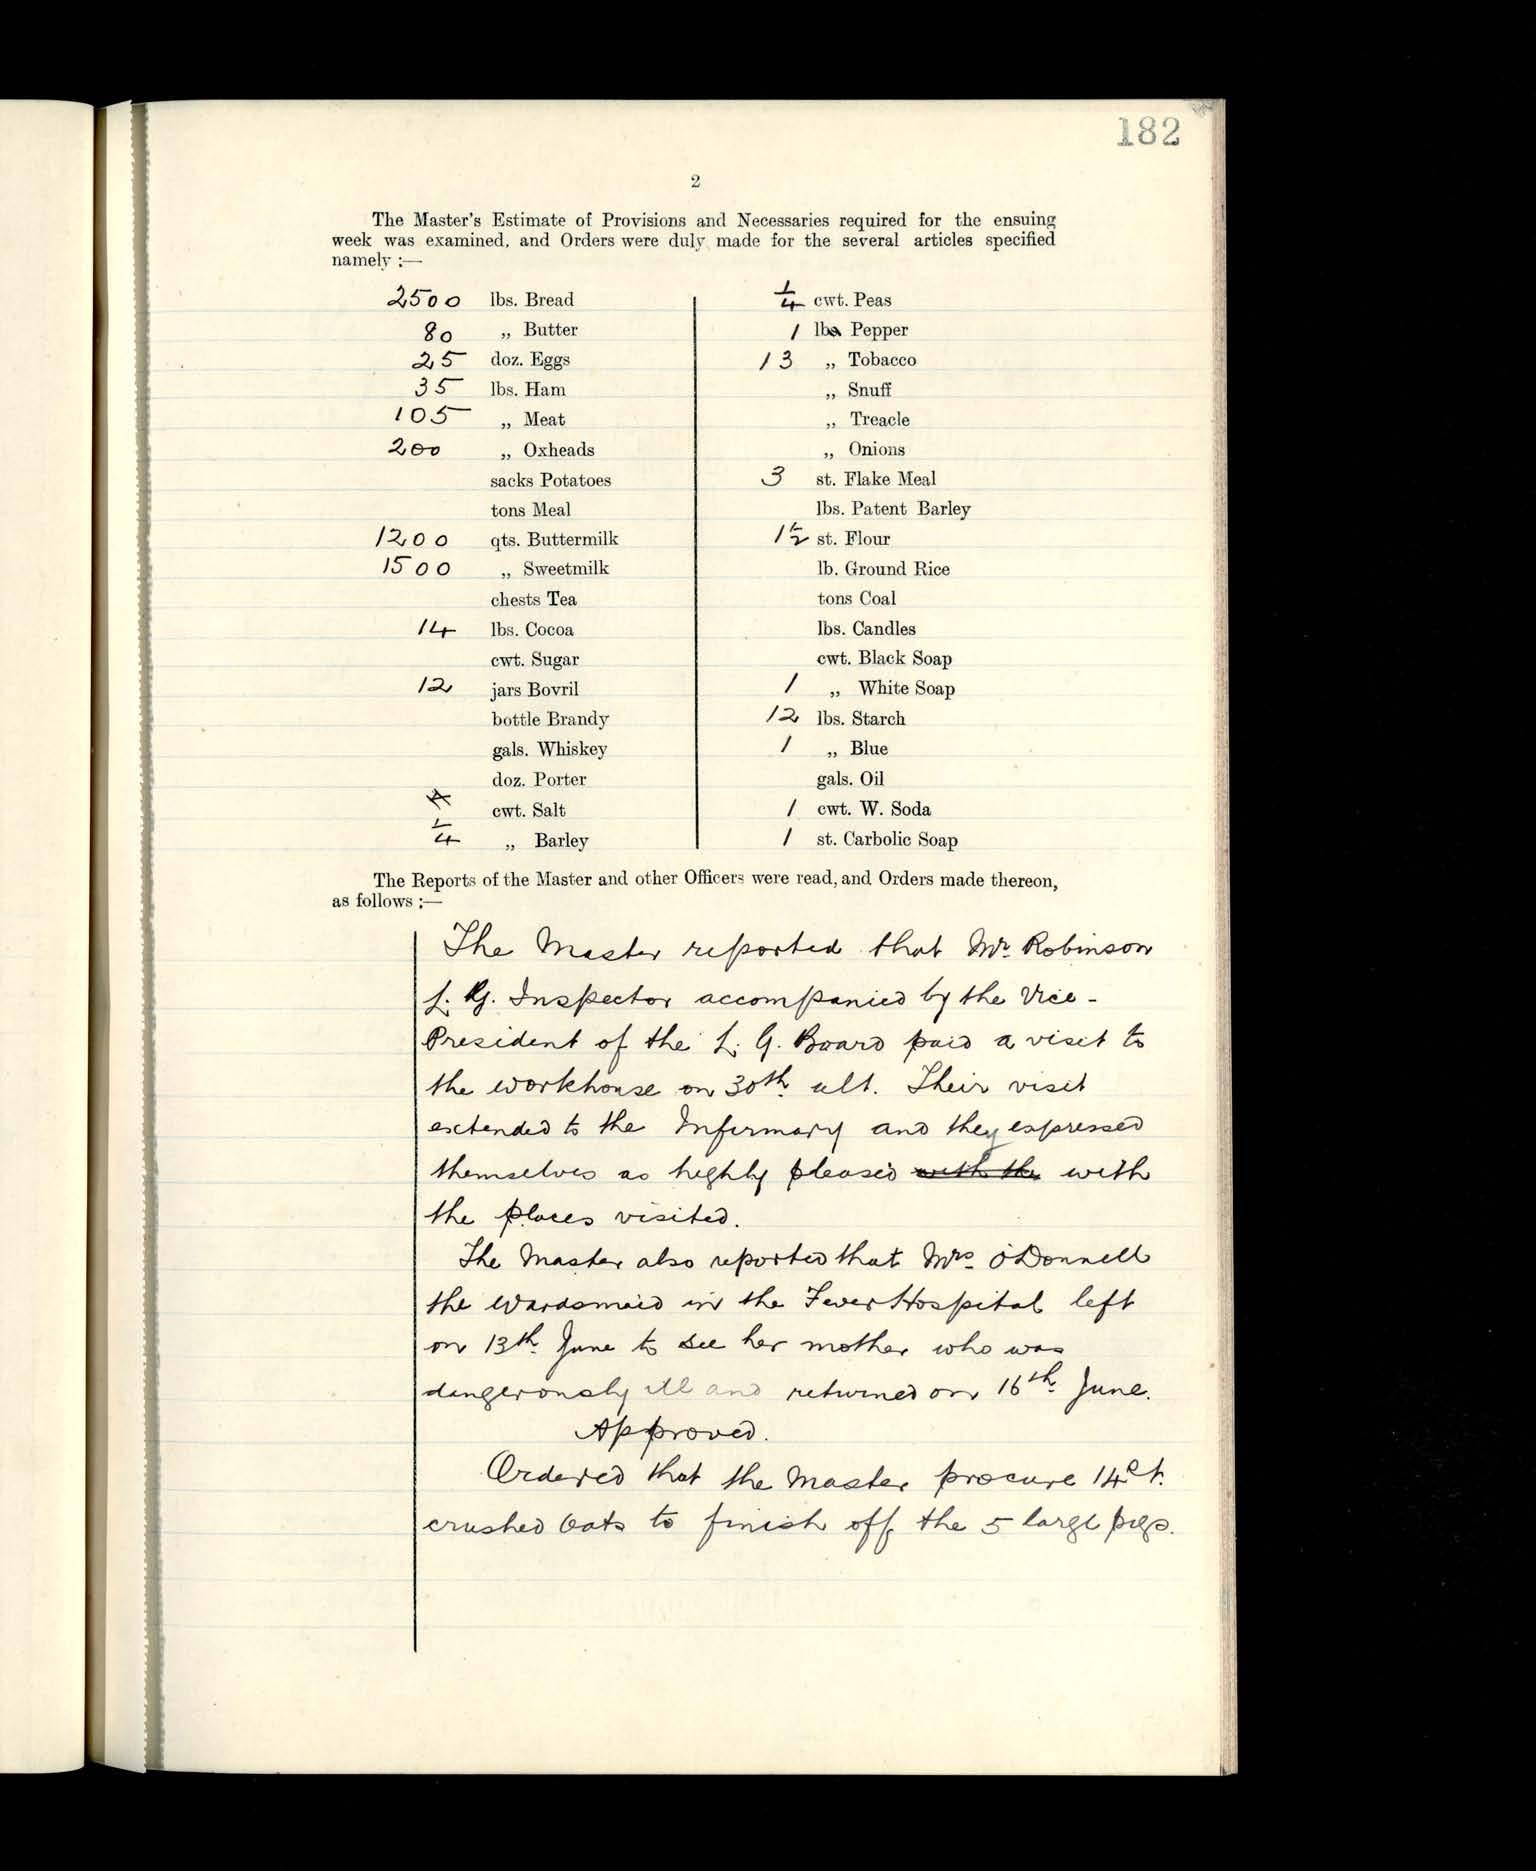 182
2
The Master's Estimate of Provisions and Necessaries required for the ensuing
week was examined, and Orders were duly made for the several articles specified
namely :—
2500 lbs. Bread
80 „ Butter
25 doz. Eggs
35 lbs. Ham
105 „ Meat
200 „ Oxheads
sacks Potatoes
tons Meal
1200 qts. Buttermilk
1500 „ Sweetmilk
chests Tea
14 lbs. Cocoa
cwt. Sugar
12 jars Bovril
bottle Brandy
gals. Whiskey
doz. Porter
cwt. Salt
1/4 „ Barley
1/4 cwt. Peas
1 lb Pepper
13 „ Tobacco
„ Snuff
„ Treacle
„ Onions
3 st. Flake Meal
lbs. Patent Barley
1 1/2 st. Flour
lb. Ground Rice
tons Coal
lbs. Candles
cwt. Black Soap
1 „ White Soap
12 lbs. Starch
1 „ Blue
gals. Oil
1 cwt. W. Soda
1 st. Carbolic Soap
The Reports of the Master and other Officers were read, and Orders made thereon,
as follows :—
The Master reported that Mr. Robinson
L. G. Inspector accompanied by the Vice-
President of the L. G. Board paid a visit to
the workhouse on 30th ult. Their visit
extended to the Infirmary and they expressed
themselves as highly pleased with the with
the places visited.
The Master also reported that Mrs. O'Donnell
the Wardsmaid in the Fever Hospital left
on 13th June to see her mother who was
dangerously ill and returned on 16th June.
Approved.
Ordered that the Master procure 14 st.
crushed Oats to finish off the 5 large pigs.